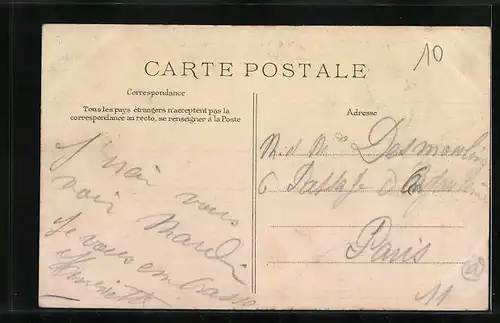 10
CARTE POSTALE
Correspondance
Tous les pays étrangers n'acceptent pas la
correspondance au recto, se renseigner à la Poste
J'irai vous
voir Mardi
Je vous embrasse
Henriette
Adresse
M. et Mme Desmoulin
6 Passage
Paris
11